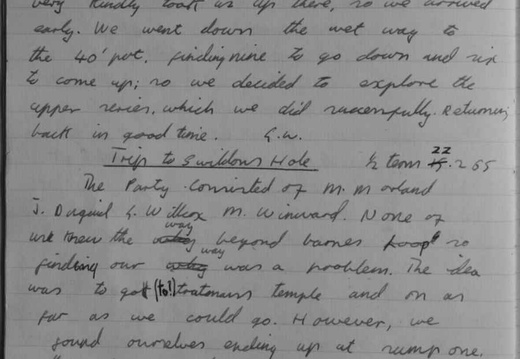 very kindly took us up there, so we arrived
early. We went down the wet way to
the 40' pot, finding nine to go down and six
to come up; so we decided to explore the
upper series, which we did successfully. Returning
back in good time. G.W.
Trip to Swildons Hole ½ term 22.2.65
The Party consisted of M. Morland
J. G. Willcox M. Winward. None of
us knew the way beyond barnes loop" so
finding our way was a problem. The idea
was to got (to!) tratmans temple and on as
far as we could go. However, we
found ourselves ending up at sump one.